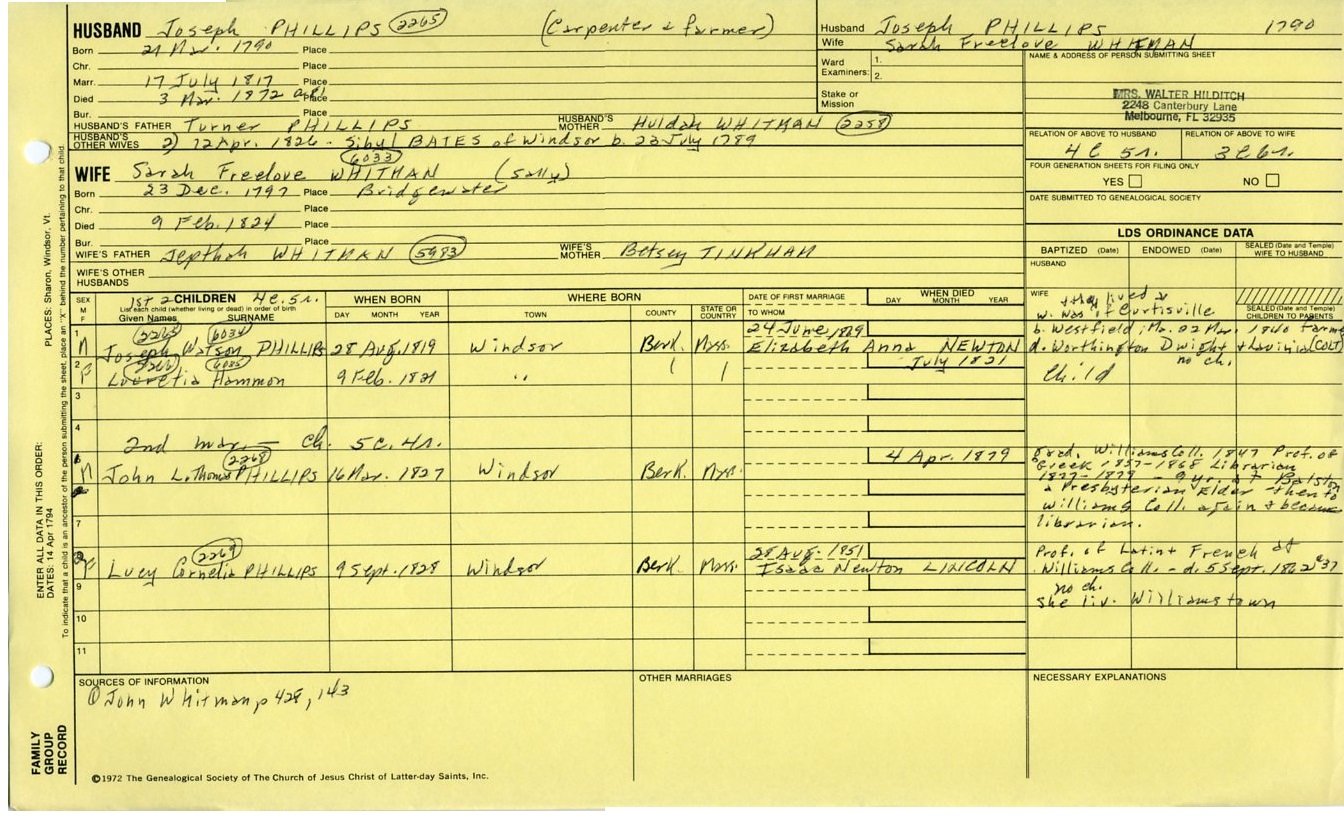 HUSBAND Joseph PHILLIPS 2265 (Carpenter & farmer)
Born 21 Mar. 1790 Place
Chr. Place
Marr. 17 July 1817 Place
Died 3 Mar. 1872 Place
Bur. Place
HUSBAND'S FATHER Turner PHILLIPS HUSBAND'S MOTHER Huldah WHITMAN 2258
HUSBAND'S OTHER WIVES 2) 12 Apr. 1826 - Sibyl BATES of Windsor b. 23 July 1789
6033
WIFE Sarah Freelove WHITMAN (Sally)
Born 23 Dec. 1797 Place Bridgewater
Chr. Place
Died 9 Feb. 1824 Place
Bur. Place
WIFE'S FATHER Jepthah WHITMAN 5983 WIFE'S MOTHER Betsey TINKHAM
WIFE'S OTHER HUSBANDS
Husband Joseph PHILLIPS 1790
Wife Sarah Freelove WHITMAN
Ward Examiners: 1.
2.
Stake or Mission
NAME & ADDRESS OF PERSON SUBMITTING SHEET
MRS. WALTER HILDITCH
2248 Canterbury Lane
Melbourne, FL 32935
RELATION OF ABOVE TO HUSBAND RELATION OF ABOVE TO WIFE
4C 5r. 3C6r.
FOUR GENERATION SHEETS FOR FILING ONLY
YES NO
DATE SUBMITTED TO GENEALOGICAL SOCIETY
LDS ORDINANCE DATA
BAPTIZED (Date) ENDOWED (Date) SEALED (Date and Temple) WIFE TO HUSBAND
HUSBAND
WIFE
SEALED (Date and Temple) CHILDREN TO PARENTS
SEX M F
1st 2 CHILDREN 4C.5r.
List each child (whether living or dead) in order of birth
Given Names SURNAME
WHEN BORN
DAY MONTH YEAR
WHERE BORN
TOWN COUNTY STATE OR COUNTRY
DATE OF FIRST MARRIAGE
TO WHOM
WHEN DIED
DAY MONTH YEAR
they lived &
w. was of Curtisville
2265 6034
1 M Joseph Watson PHILLIPS 28 Aug. 1819 Windsor Berk. Mass. 24 June 1869
Elizabeth Anna NEWTON
b. Westfield, Ms. 22 Mar. 1840 farmer
d. Worthington Dwight & Lavinia (COLT)
no ch.
6035
2 F Lucretia Hammon 9 Feb. 1821 " July 1821
Child
3
4
2nd mar. — ch. 5C.4r.
2268
M John L. Thomas PHILLIPS 16 Mar. 1827 Windsor Berk. Mass. 4 Apr. 1879
grad. Williams Coll. 1847 Prof. of
Greek 1857-1868 Librarian
- 9 yr. at Balston
a Presbyterian Elder - then to
Williams Coll. again & became
librarian.
7
2269
F Lucy Cornelia PHILLIPS 9 Sept. 1828 Windsor Berk. Mass. 28 Aug. 1851
Isaac Newton LINCOLN
Prof. of Latin & French at
Williams Coll. - d. 5 Sept. 1862 ae 37
no ch.
she liv. Williamstown
9
10
11
SOURCES OF INFORMATION
① John Whitman, p 428, 143
OTHER MARRIAGES
NECESSARY EXPLANATIONS
©1972 The Genealogical Society of The Church of Jesus Christ of Latter-day Saints, Inc.
FAMILY GROUP RECORD
ENTER ALL DATA IN THIS ORDER:
DATES: 14 Apr 1794
PLACES: Sharon, Windsor, Vt.
To indicate that a child is an ancestor of the person submitting the sheet, place an "X" behind the number pertaining to that child.